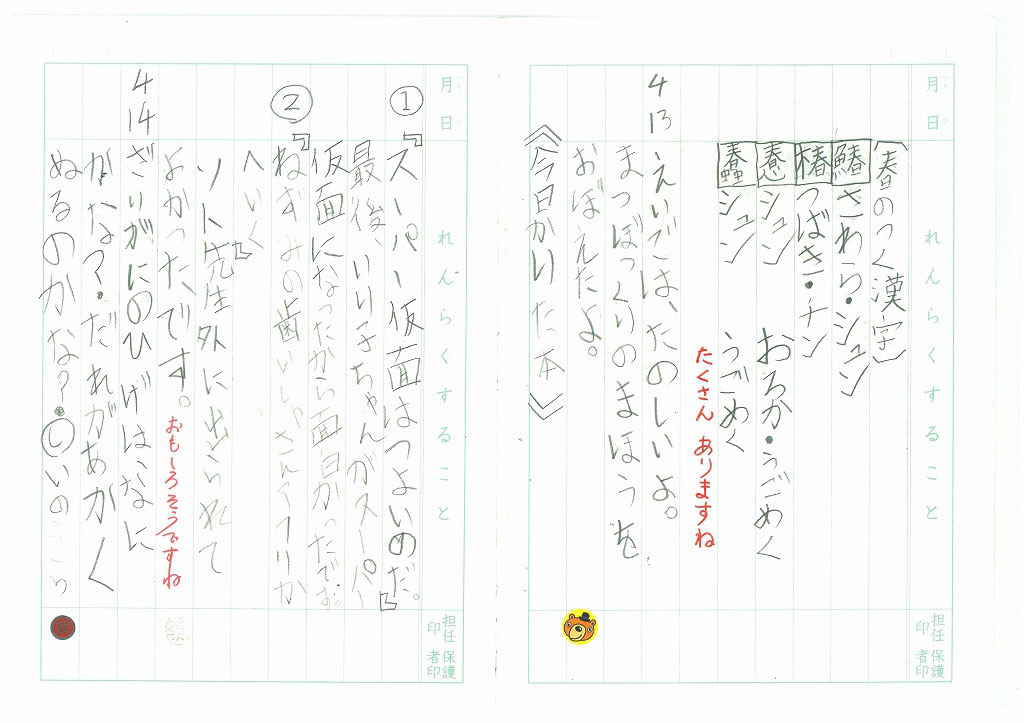 月 日 れんらくすること 担任印 保護者印
(春のつく漢字)
鰆 さわら・シュン
椿 つばき・チン
惷 シュン おろか・うごめく
蠢 シュン うごめく
たくさん ありますね
4 13 えいごは、たのしいよ。
まつぼっくりのまほうを
おぼえたよ。
《今日かりた本》
月 日 れんらくすること 担任印 保護者印
①『スーパー仮面はつよいのだ。』
最後、いり子ちゃんがスーパー
仮面になったから面白かったです。
②『ねずみの歯いしゃさんアフリカ
へいく』
ソト先生外に出られて
よかったです。
おもしろそうですね
4 14 ざりがにのひげは、なに
かな?・だれがあかく
ぬるのかな?・